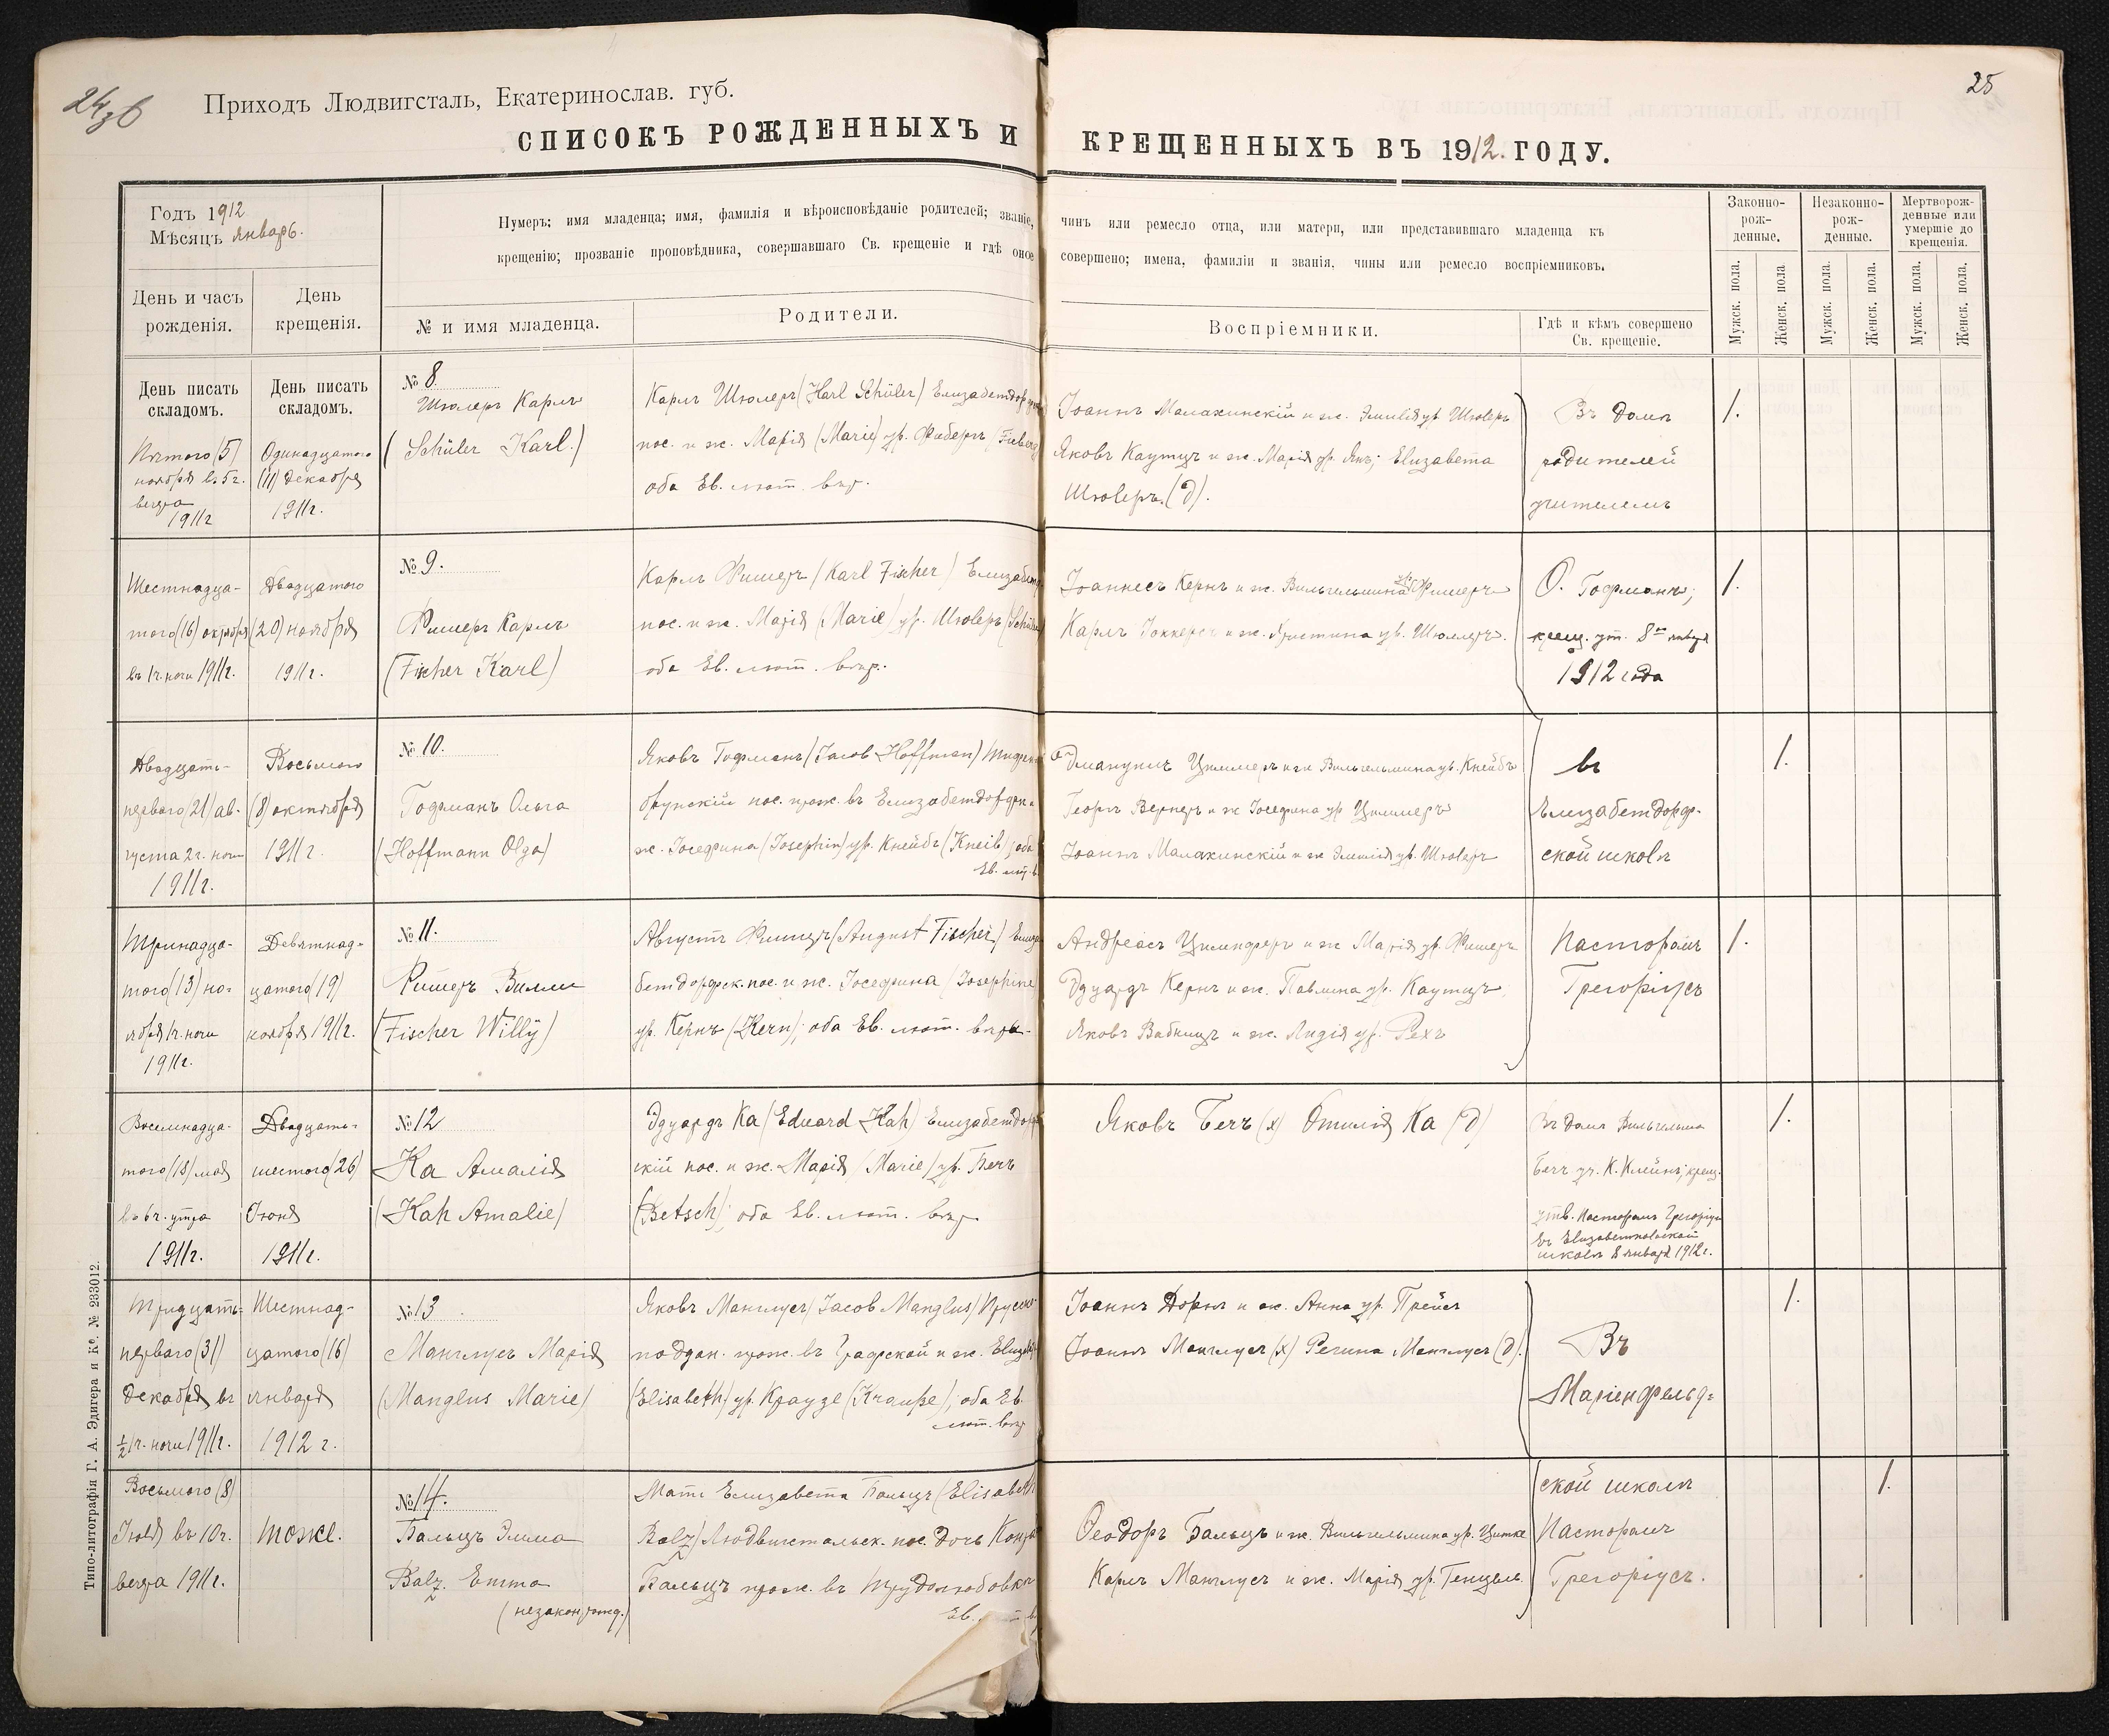 24 об
Приходъ Людвигсталь, Екатеринослав. губ.
СПИСОКЪ РОЖДЕННЫХЪ И
Годъ 1912
Мѣсяцъ Январь.
День и часъ
рожденія.
День
крещенія.
Нумеръ; имя младенца; имя, фамилія и вѣроисповѣданіе родителей; званіе,
крещенію; прозваніе проповѣдника, совершавшаго Св. крещеніе и гдѣ оное
№ и имя младенца.
Родители.
День писать
складомъ.
Пятого (5)
ноября в. 5 г.
вечера
1911 г
День писать
складомъ.
Одинадцатого
(11) декабря
1911 г.
№ 8.
Шюлеръ Карлъ
(Schüler Karl.)
Карлъ Шюлеръ (Karl Schüler) Елизабетдорф
пос. и ж. Марія (Marie) ур. Фибергъ (Fieberg
оба Ев. лют. вѣр.
Шестнадца-
того (16) октября
въ 1 ч. ночи 1911 г.
Двадцатого
(20) ноября
1911 г.
№ 9.
Фишеръ Карлъ
(Fischer Karl)
Карлъ Фишеръ (Karl Fischer) Елизабет
пос. и ж. Марія (Marie) ур. Шюлеръ (Schüler
оба Ев. лют. вѣр.
Двадцать-
перваго (21) ав-
густа 2 г. ночи
1911 г.
Восьмого
(8) октября
1911 г.
№ 10.
Гофманъ Ольга
(Hoffmann Olga)
Яковъ Гофманъ (Jacob Hoffman)
брунскій пос. прож. въ Елизабетдорфѣ и
ж. Іосефина (Josephin) ур. Кнейбъ (Kneib); оба
Ев. лют. в.
Тринадца-
того (13) но-
ября 1 ч. ночи
1911 г.
Девятнад-
цатого (19)
ноября 1911 г.
№ 11.
Фишеръ Вилли
(Fischer Willÿ)
Августъ Фишеръ (August Fischer) Елиза
бетдорфск. пос. и ж. Іосефина (Josephine
ур. Кернъ (Kern); оба Ев. лют. вѣры.
Восемнадца-
того (18) мая
въ 6 ч. утра
1911 г.
Двадцать-
шестого (26)
Іюня
1911 г.
№ 12
Ка Амалія
(Kah Amalie)
Эдуардъ Ка (Eduard Kah) Елизабетдорф
скій пос. и ж. Марія (Marie) ур. Бечъ
(Betsch); оба Ев. лют. вѣр
Тридцать-
перваго (31)
декабря въ
½ 1 ч. ночи 1911 г.
Шестнад-
цатого (16)
января
1912 г.
№ 13.
Манглусъ Марія
(Manglus Marie)
Яковъ Манглусъ (Jacob Manglus) Прусск
поддан. прож. въ Графской и ж. Елизав
(Elisabeth) ур. Краузе (Krauße); оба Ев.
лют. вѣр
Восьмого (8)
Іюля въ 10 ч.
вечера 1911 г.
тоже.
№ 14.
Бальцъ Эмма
Balz. Emma
(незакон. рожд.)
Мать Елизавета Бальцъ (Elisabeth
Balz) Людвигстальск. пос. дочь Конра
Бальцъ прож. въ Трудолюбовкѣ
Ев.
Типо-литографія Г. А. Эдигера и Кº. № 233012.
25
КРЕЩЕННЫХЪ ВЪ 1912. ГОДУ.
чинъ или ремесло отца, или матери, или представившаго младенца къ
совершено; имена, фамиліи и званія, чины или ремесло воспріемниковъ.
Воспріемники.
Гдѣ и кѣмъ совершено
Св. крещеніе.
Законно-
рож-
денные.
Незаконно-
рож-
денные.
Мертворож-
денные или
умершіе до
крещенія.
Мужск. пола.
Женск. пола
Мужск. пола.
Женск. пола.
Мужск. пола.
Женск. пола.
Іоаннъ Малакинскій и ж. Эмилія ур. Шюлеръ
Яковъ Каутцъ и ж. Марія ур. Янъ; Елизавета
Шюлеръ. (д).
Въ домѣ
родителей
учителемъ
1.
Іоаннесъ Кернъ и ж. Вильгельмина ур. Фишеръ
Карлъ Іоккерсъ и ж. Христина ур. Шюллеръ.
О. Гофманъ;
крещ. ут. 8го января
1912 года
1.
Эмануилъ Циммеръ и ж Вильгельмина ур. Кнейбъ
Георгъ Вернеръ и ж Іосефина ур Циммеръ
Іоаннъ Малакинскій и ж Эмилія ур. Шюлеръ
въ
Елизабетдорф-
ской школѣ
1.
Андреасъ Цилендреръ и ж Марія ур. Фишеръ
Эдуардъ Кернъ и ж. Павлина ур. Каутцъ
Яковъ Вабницъ и ж. Лидія ур. Рехъ
Пасторомъ
Грегоріусъ
1.
Яковъ Бечъ (х) Отилія Ка (д)
Въ домѣ Вильгельма
Бечъ уч. К. Клейнъ; крещ.
утв. Пасторомъ Грегоріусъ
въ
школѣ 8 января 1912 г.
1.
Іоаннъ Дорнъ и ж. Анна ур. Прейсъ
Іоаннъ Манглусъ (х) Регина Манглусъ (д).
Въ
Маріенфельд-
1.
Ѳеодоръ Бальцъ и ж. Вильгельмина ур. Цитке
Карлъ Манглусъ и ж. Марія ур. Генцель.
ской школѣ
Пасторомъ
Грегоріусъ.
1.